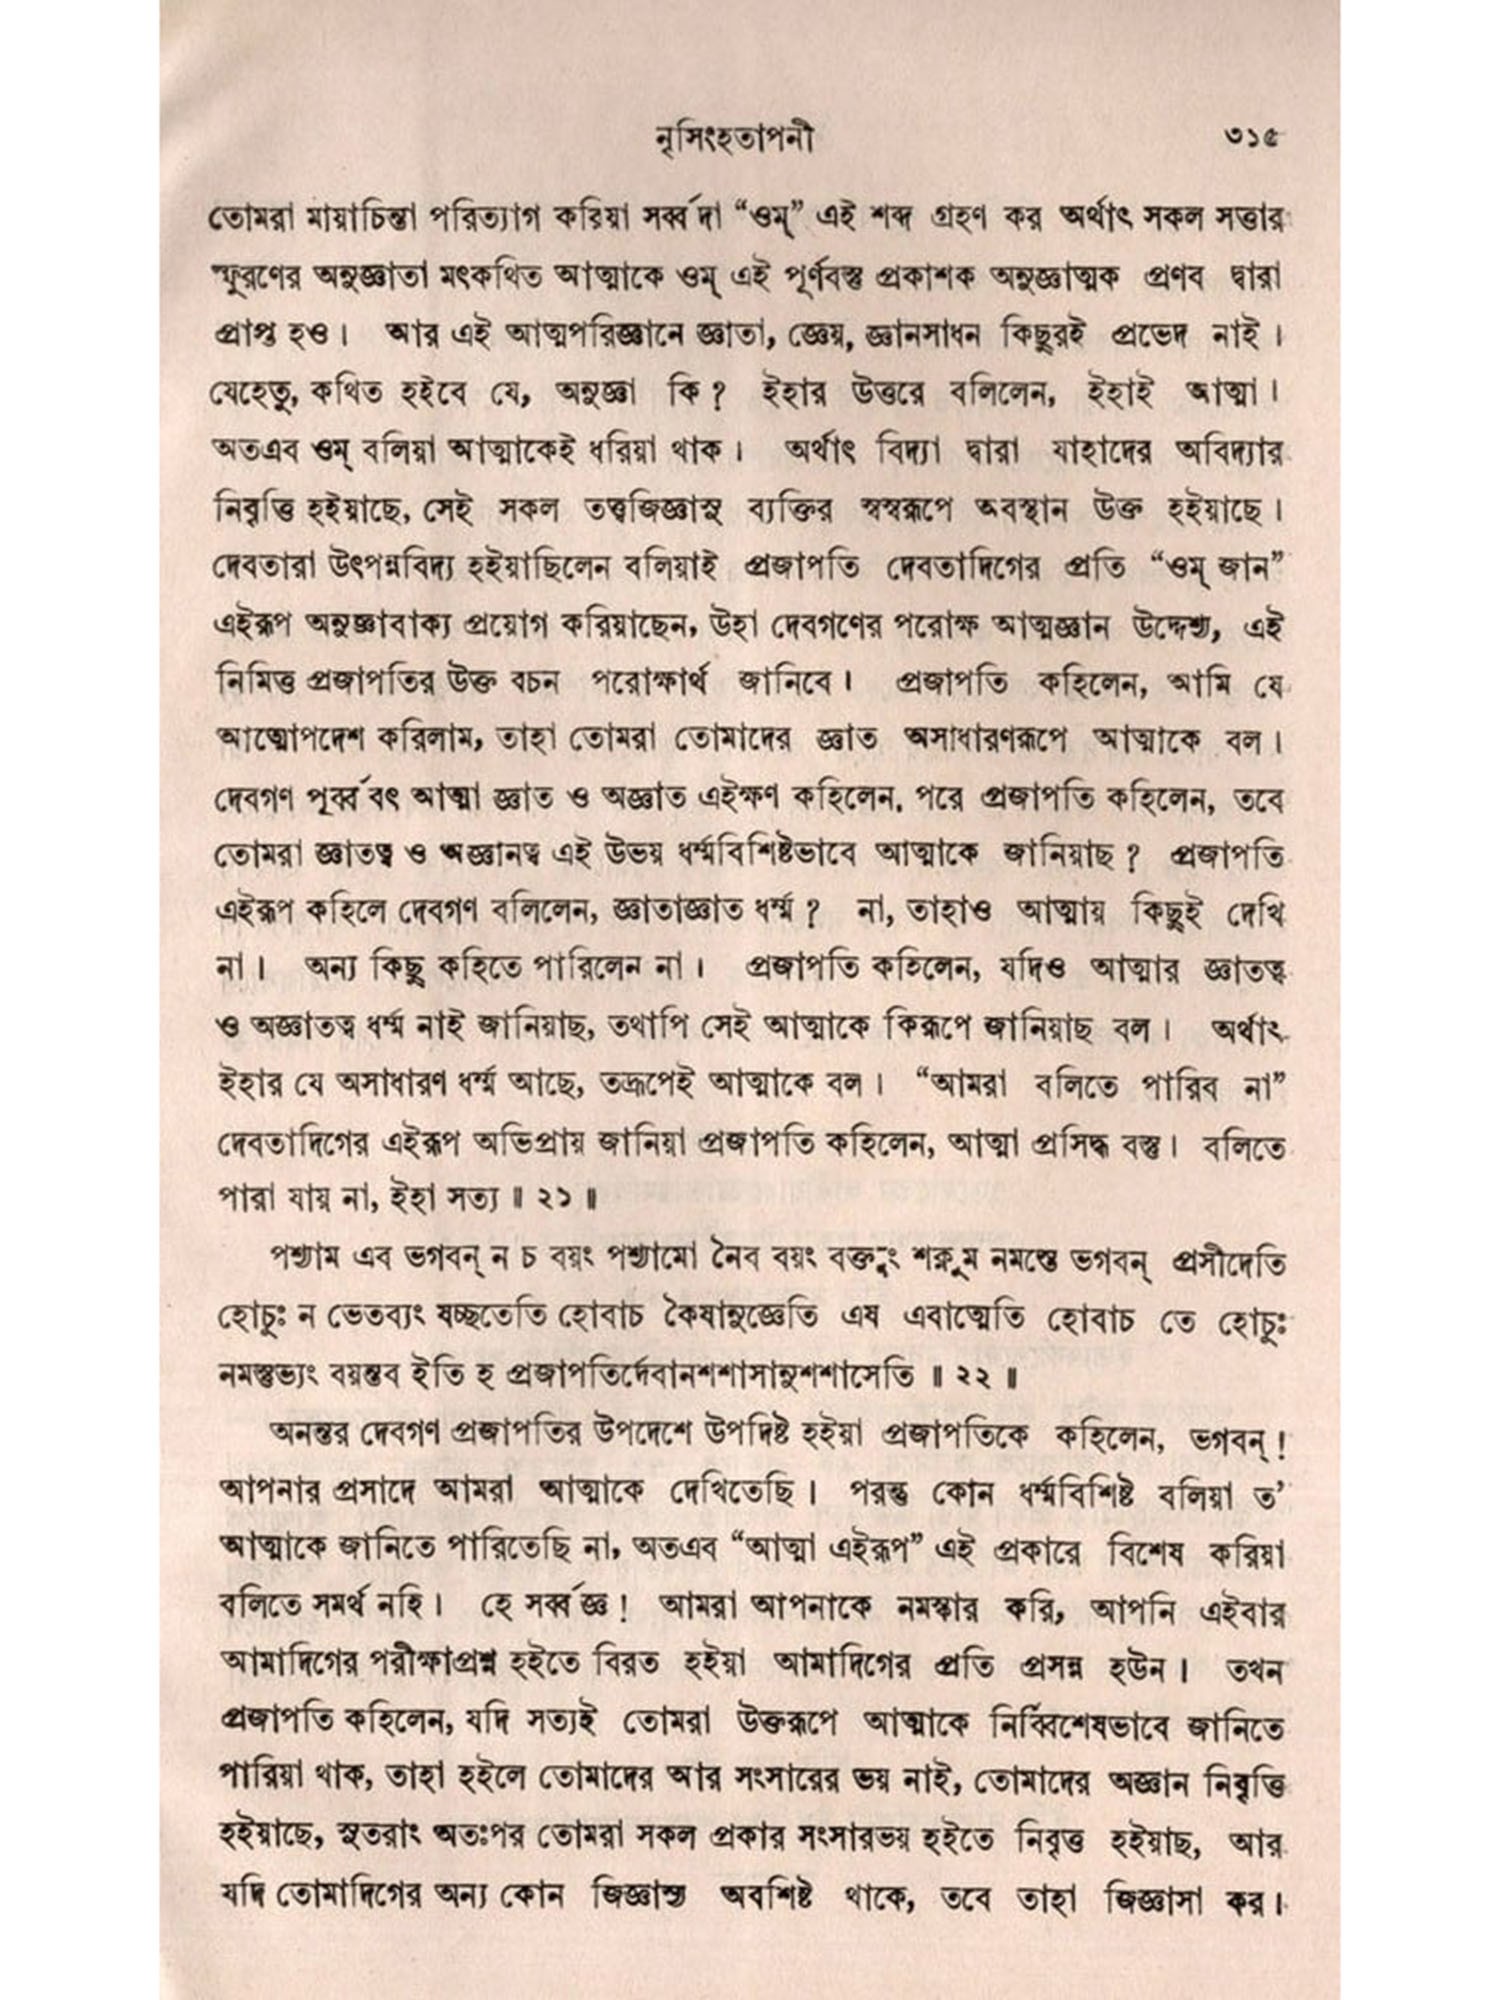 নৃসিংহতাপনী ৩১৫
তোমরা মায়াচিন্তা পরিত্যাগ করিয়া সর্ব্বদা “ওম্” এই শব্দ গ্রহণ কর অর্থাৎ সকল সত্তার
স্ফুরণের অনুজ্ঞাতা মৎকথিত আত্মাকে ওম্ এই পূর্ণবস্তু প্রকাশক অনুজ্ঞাত্মক প্রণব দ্বারা
প্রাপ্ত হও। আর এই আত্মপরিজ্ঞানে জ্ঞাতা, জ্ঞেয়, জ্ঞানসাধন কিছুরই প্রভেদ নাই।
যেহেতু, কথিত হইবে যে, অনুজ্ঞা কি? ইহার উত্তরে বলিলেন, ইহাই আত্মা।
অতএব ওম্ বলিয়া আত্মাকেই ধরিয়া থাক। অর্থাৎ বিদ্যা দ্বারা যাহাদের অবিদ্যার
নিবৃত্তি হইয়াছে, সেই সকল তত্ত্বজিজ্ঞাসু ব্যক্তির স্বস্বরূপে অবস্থান উক্ত হইয়াছে।
দেবতারা উৎপন্নবিদ্য হইয়াছিলেন বলিয়াই প্রজাপতি দেবতাদিগের প্রতি “ওম্ জান”
এইরূপ অনুজ্ঞাবাক্য প্রয়োগ করিয়াছেন, উহা দেবগণের পরোক্ষ আত্মজ্ঞান উদ্দেশ্য, এই
নিমিত্ত প্রজাপতির উক্ত বচন পরোক্ষার্থ জানিবে। প্রজাপতি কহিলেন, আমি যে
আত্মোপদেশ করিলাম, তাহা তোমরা তোমাদের জ্ঞাত অসাধারণরূপে আত্মাকে বল।
দেবগণ পূর্ব্ববৎ আত্মা জ্ঞাত ও অজ্ঞাত এইক্ষণ কহিলেন, পরে প্রজাপতি কহিলেন, তবে
তোমরা জ্ঞাতত্ব ও অজ্ঞানত্ব এই উভয় ধর্ম্মবিশিষ্টভাবে আত্মাকে জানিয়াছ? প্রজাপতি
এইরূপ কহিলে দেবগণ বলিলেন, জ্ঞাতাজ্ঞাত ধর্ম্ম? না, তাহাও আত্মায় কিছুই দেখি
না। অন্য কিছু কহিতে পারিলেন না। প্রজাপতি কহিলেন, যদিও আত্মার জ্ঞাতত্ব
ও অজ্ঞাতত্ব ধর্ম্ম নাই জানিয়াছ, তথাপি সেই আত্মাকে কিরূপে জানিয়াছ বল। অর্থাৎ
ইহার যে অসাধারণ ধর্ম্ম আছে, তদ্রূপেই আত্মাকে বল। “আমরা বলিতে পারিব না”
দেবতাদিগের এইরূপ অভিপ্রায় জানিয়া প্রজাপতি কহিলেন, আত্মা প্রসিদ্ধ বস্তু। বলিতে
পারা যায় না, ইহা সত্য ॥ ২১ ॥
পশ্যাম এব ভগবন্ ন চ বয়ং পশ্যামো নৈব বয়ং বক্তুং শক্নুম নমস্তে ভগবন্ প্রসীদেতি
হোচুঃ ন ভেতব্যং যচ্ছতেতি হোবাচ কৈষানুজ্ঞেতি এষ এবাত্মেতি হোবাচ তে হোচুঃ
নমস্তুভ্যং বয়ন্তব ইতি হ প্রজাপতির্দেবানশশাসানুশশাসেতি ॥ ২২ ॥
অনন্তর দেবগণ প্রজাপতির উপদেশে উপদিষ্ট হইয়া প্রজাপতিকে কহিলেন, ভগবন্!
আপনার প্রসাদে আমরা আত্মাকে দেখিতেছি। পরন্তু কোন ধর্ম্মবিশিষ্ট বলিয়া ত’
আত্মাকে জানিতে পারিতেছি না, অতএব “আত্মা এইরূপ” এই প্রকারে বিশেষ করিয়া
বলিতে সমর্থ নহি। হে সর্ব্বজ্ঞ! আমরা আপনাকে নমস্কার করি, আপনি এইবার
আমাদিগের পরীক্ষাপ্রশ্ন হইতে বিরত হইয়া আমাদিগের প্রতি প্রসন্ন হউন। তখন
প্রজাপতি কহিলেন, যদি সত্যই তোমরা উক্তরূপে আত্মাকে নির্ব্বিশেষভাবে জানিতে
পারিয়া থাক, তাহা হইলে তোমাদের আর সংসারের ভয় নাই, তোমাদের অজ্ঞান নিবৃত্তি
হইয়াছে, সুতরাং অতঃপর তোমরা সকল প্রকার সংসারভয় হইতে নিবৃত্ত হইয়াছ, আর
যদি তোমাদিগের অন্য কোন জিজ্ঞাস্য অবশিষ্ট থাকে, তবে তাহা জিজ্ঞাসা কর।